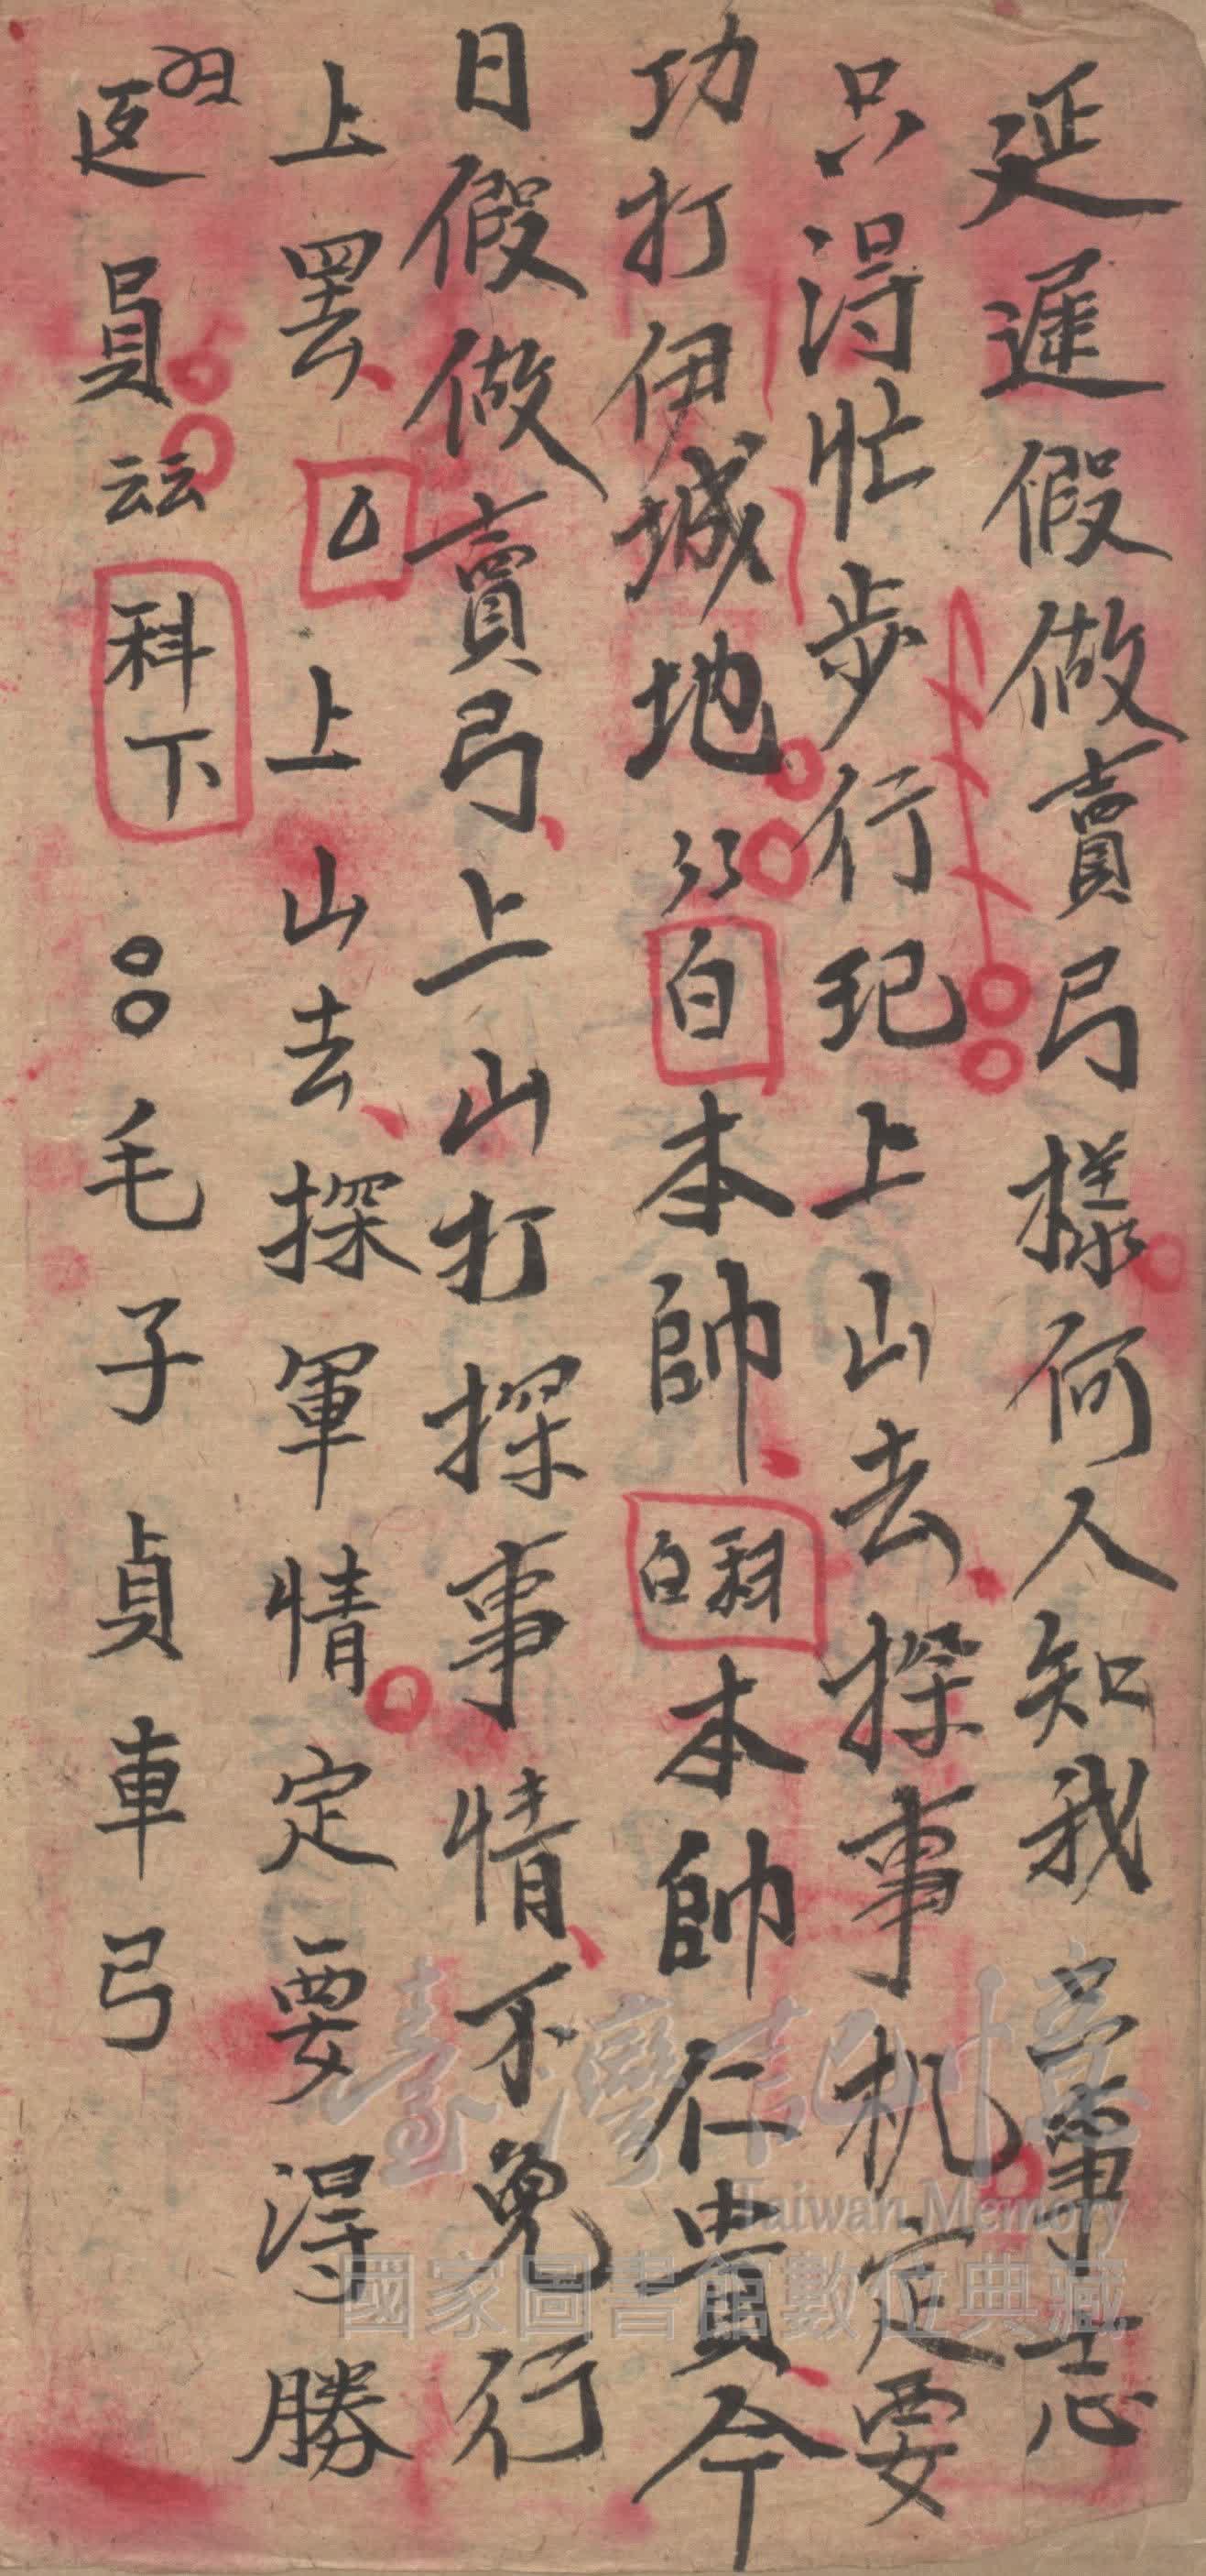 延遲假做賣弓樣何人知我宣軍志
只淂忙步行杞上山去探事机定要
功打伊城地〻〻白本帥科白本帥仁貴今
日假做賣弓上山打探事情不免行
上罢上山去探軍情定要淂勝
返員云云科下毛子貞車弓
臺灣記憶
Taiwan Memory
國家圖書館數位典藏